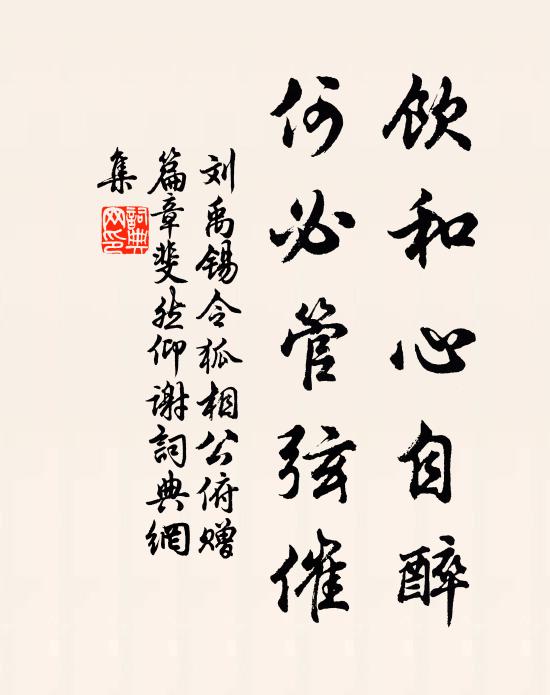 飲和心自醉
何必管弦催
刘禹锡令狐相公俯赠
篇章斐然仰谢詞典網
集
詞典網印